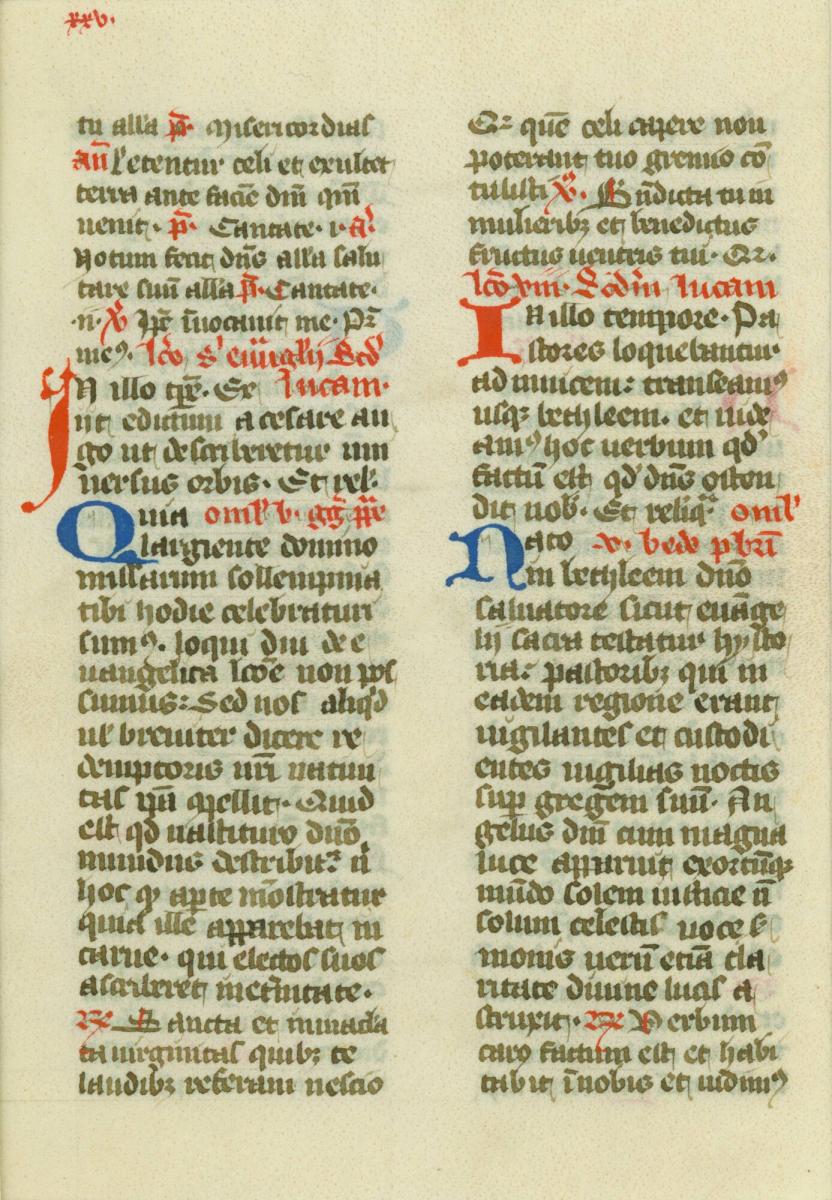 xxv.
tu alla p̄. Misericordias
an̄ Letentur celi et exultet
terra ante faciē dn̄i qm̄
uenit. p̄. Cantate. i. a.
Notum fecit dn̄s alla salu
tare suū alla p̄. Cantate.
.ii. v̄ Ip̄e īuocauit me. Pr̄
meꝰ. lc̄o s̄ Scd̄
IN illo tp̄e. Ex lucam.
iit edictum a cesare au
go ut describeretur uni
uersus orbis. Et rel.
Quia omīl v. gḡ p̄pe
largiente domino
missarum sollempnia
tibi hodie celebraturi
sumꝰ. loqui diu de e
uangelica lcōe non pos
sumus: Sed nos aliqd
ul breuiter dicere re
demptoris nr̄i natiui
tas ip̄a cōpellit. Quid
est qd nascituro dn̄o
mundus describit᷑ n̄
hoc qꝫ aperte mōstratur
quia ille apparebat in
carne. qui electos suos
ascriberet in etnitate.
R̄ Sancta et inmacla
ta uirginitas quibꝫ te
laudibꝫ referam nescio
Qꝛ quē celi capere non
poterant tuo gremio cō
tulisti v̄. Bn̄dicta tu in
mulieribꝫ et benedictus
fructus uentris tui. Qꝛ.
lc̄o viii. Scd̄m lucam
In illo tempore. Pa
stores loquebantur
ad inuicem: transeamꝰ
usqꝫ bethleem. et uide
amꝰ hoc uerbum qd
factū est qd dn̄s osten
dit nob. Et reliq̄. omīl
Nato v. bede p̄br̄i
in bethleem dn̄o
saluatore sicut euāge
lii sacra testatur hysto
ria: pastoribꝫ qui in
eadem regione erant
uigilantes et custodi
entes uigilias noctis
sup gregem suū. An
gelus dn̄i cum magna
luce apparuit exortūqꝫ
mūdo solem iusticie n̄
solum celestis uoce s̄
monis uerū etiā cla
ritate diuine lucis a
struxit. R̄ Verbum
caro factum est et habi
tabit īnobis et uidimꝰ